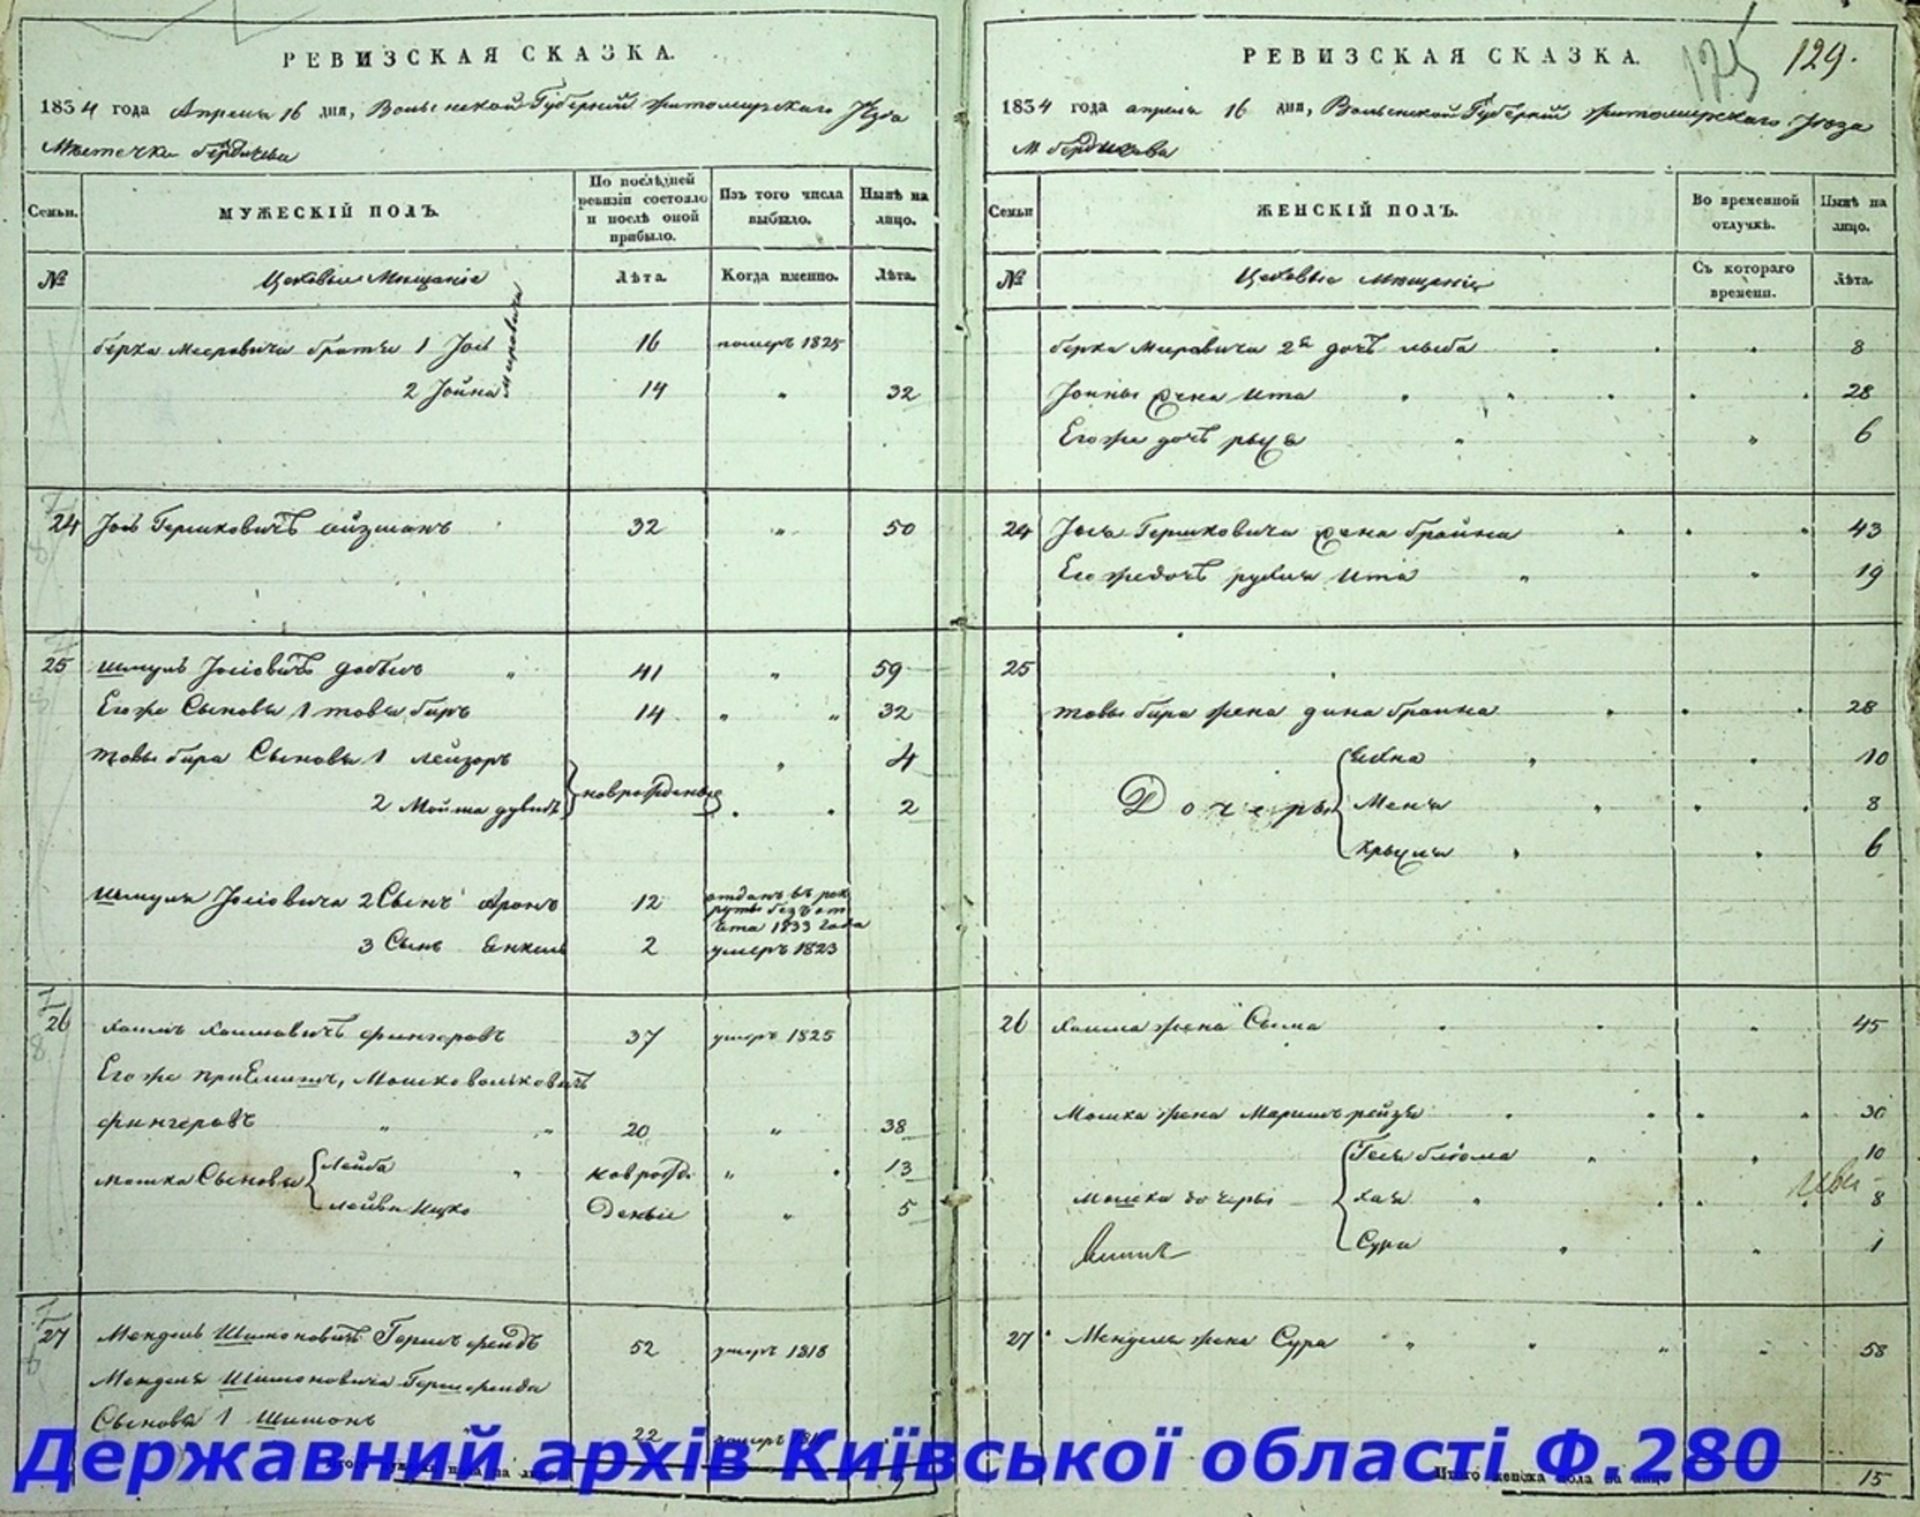 РЕВИЗСКАЯ СКАЗКА.
1834 года Апреля 16 дня, Волынской Губерніи Житомирскаго Уезда
Местечка бердичева
Семьи.
МУЖЕСКІЙ ПОЛЪ.
По послѣдней ревизіи состояло и послѣ оной прибыло.
Изъ того числа выбыло.
Нынѣ на лицо.
№
Цеховые Мещаніе
Лѣта.
Когда именно.
Лѣта.
берка Меерович братья 1 Јось Меровичи 16 померъ 1825
2 Јойна 14 " 32
24 Јось Гершковичъ айзманъ 32 " 50
25 Шмуль Јосіовичъ 41 " 59
Егоже Сыновья 1 товы биръ 14 " " 32
товы бира Сыновья 1 лейзоръ " 4
2 Мойша дувидъ новрожденые 2
Шмуля Јосіовича 2 Сынъ Аронъ 12 отданъ въ рекруты безъ 1833 года
3 Сынъ Янкель 2 умеръ 1823
26 Хаимъ Хаимовичъ фингеровъ 37 умеръ 1825
Егоже приЕмишъ, Мошко вольковичъ
фингеровъ " " 20 " 38
мошка Сыновья Лейба " новрож " 13
лейви Ицко Деные " 5
27 Мендель Шимоновичъ Гершъфендъ 52 умеръ 1818
Менделя Шимоновича Гершфенда
Сыновья 1 Шимонъ 22
РЕВИЗСКАЯ СКАЗКА.
175
129.
1834 года апреля 16 дня, Волынской Губерніи житомирскаго Уезда
М бердичева
Семьи
ЖЕНСКІЙ ПОЛЪ.
Во временной отлучкѣ.
Нынѣ на лицо.
№
Цеховые Мещаніе
Съ котораго времени.
Лѣта.
берка Меровича 2я дочъ лыба 8
Јойны жена Ита 28
Егоже дочъ рыся 6
24 Јося Гершковича жена брайна 43
Егожедочъ рувля Ита 19
25
товы бира жена дина браина 28
Дочеры
10
Меня 8
Крыселя 6
26 Хаима жена Сыма 45
Мошка жена Маримъ рейзя 30
Геся блюма 10
Мошка дочеры Хая 8
Сура 1
27 Менделя жена Сура 58
Итого женска пола на лицо 15
Державний архів Київської області Ф.280